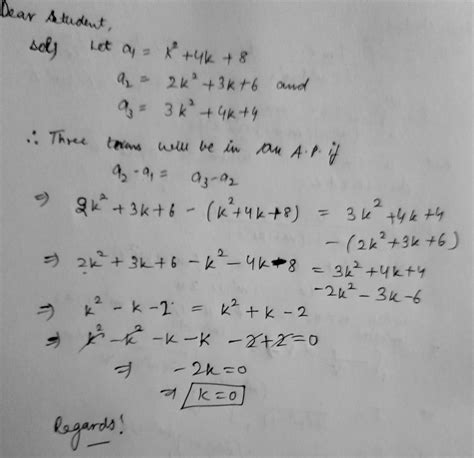 Dear Student,
Sol) Let a₁ = k² + 4k + 8
a₂ = 2k² + 3k + 6 and
a₃ = 3k² + 4k + 4
∴ Three terms will be in an A.P. if
a₂ - a₁ = a₃ - a₂
⇒ 2k² + 3k + 6 - (k² + 4k + 8) = 3k² + 4k + 4
- (2k² + 3k + 6)
⇒ 2k² + 3k + 6 - k² - 4k - 8 = 3k² + 4k + 4
- 2k² - 3k - 6
⇒ k² - k - 2 = k² + k - 2
⇒ k² - k² - k - k - 2 + 2 = 0
⇒ - 2k = 0
⇒ k = 0
Regards!